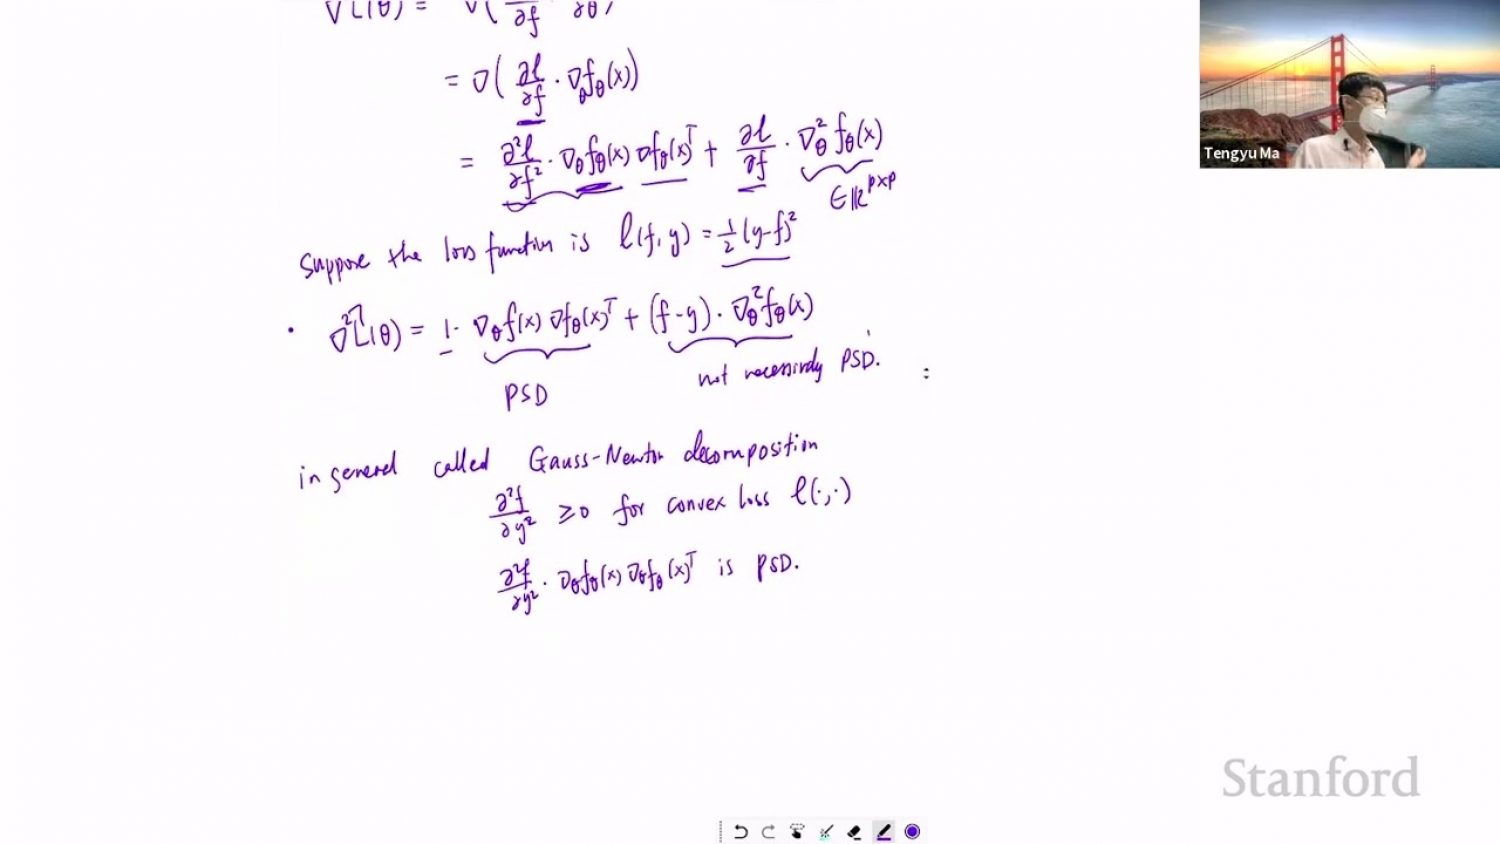 ∇²L(θ) = ∇(∂l/∂f · ∂f/∂θ)
= ∇(∂l/∂f · ∇_θ f_θ(x))
= ∂²l/∂f² · ∇_θ f_θ(x) ∇f_θ(x)^T + ∂l/∂f · ∇²_θ f_θ(x)
∈ ℝ^{p×p}
Suppose the loss function is l(f, y) = 1/2 (y-f)²
· ∇²L(θ) = 1 · ∇_θ f(x) ∇f_θ(x)^T + (f-y) · ∇²_θ f_θ(x)
PSD
not necessirdy PSD.
in general called Gauss-Newton decomposition
∂²f/∂y² ≥ 0 for convex loss l(·,·)
∂²f/∂y² · ∇_θ f_θ(x) ∇_θ f_θ(x)^T is PSD.
Tengyu Ma
Stanford